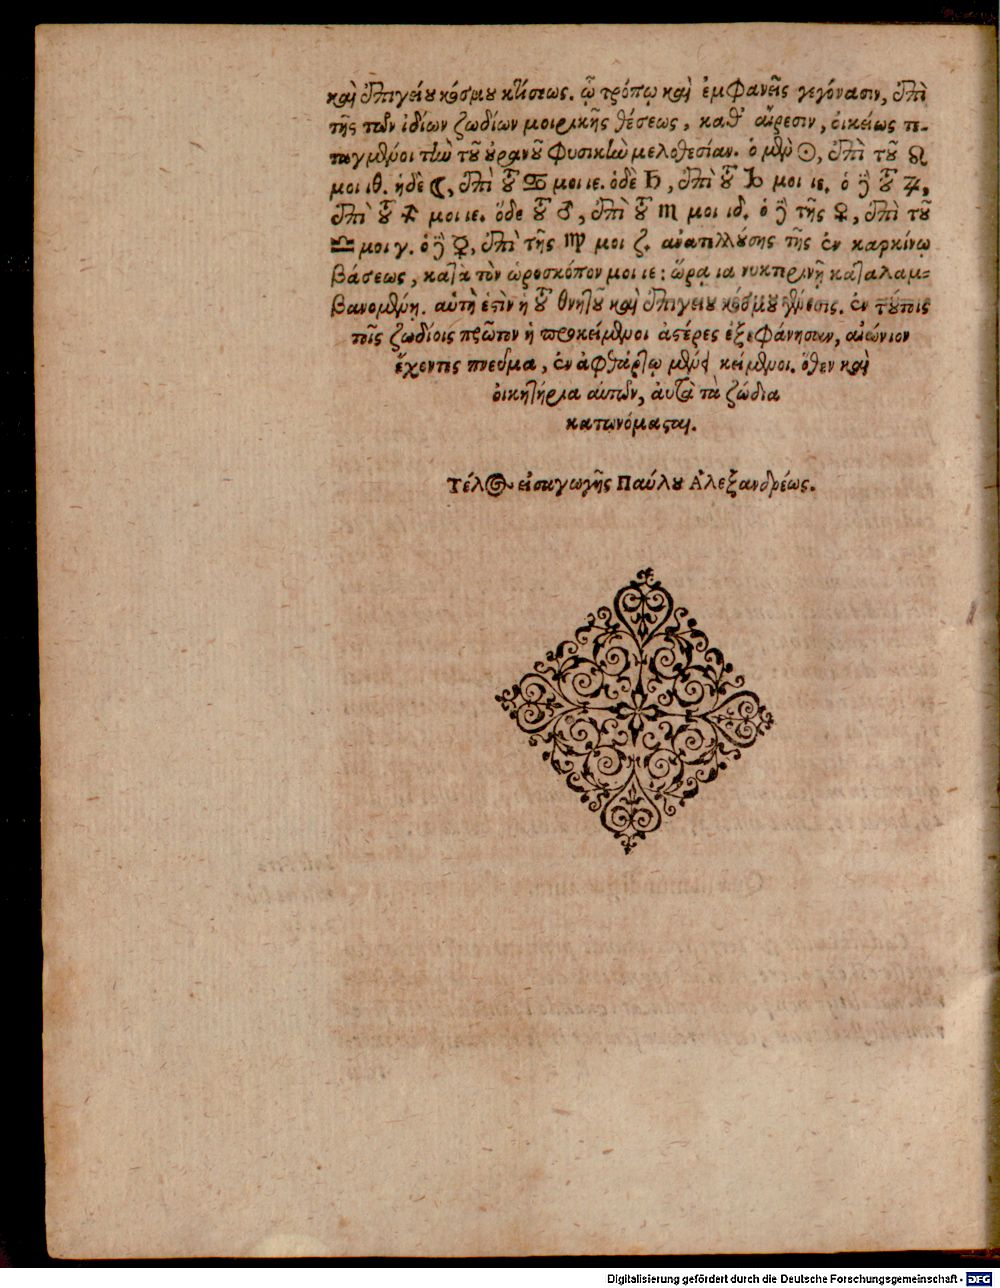 καὶ ἐπιγείου κόσμου κτίσεως. ᾧ τρόπῳ καὶ ἐμφανεῖς γεγόνασιν, ἐπὶ
τῆς τῶν ἰδίων ζωδίων μοιρικῆς θέσεως, καθ᾽ αἵρεσιν, οἰκείως τε-
ταγμένοι τὴν τοῦ οὐρανοῦ φυσικὴν μελοθεσίαν. ὁ μὲν ☉, ἐπὶ τοῦ ♌
μοι ιθ. ἡ δὲ ☾, ἐπὶ τοῦ ♋ μοι ιε. ὁ δὲ ♄, ἐπὶ τοῦ ♑ μοι ιε. ὁ δὲ τοῦ ♃,
ἐπὶ τοῦ ♐ μοι ιε. ὅδε τοῦ ♂, ἐπὶ τοῦ ♏ μοι ιδ. ὁ δὲ τῆς ♀, ἐπὶ τοῦ
♎ μοι γ. ὁ δὲ ☿, ἐπὶ τῆς ♍ μοι ζ. ἀνατελλούσης τῆς ἐν καρκίνῳ
βάσεως, κατὰ τὸν ὡροσκόπον μοι ιε: ὥρα ια νυκτερινῇ καταλαμ-
βανομένη. αὕτη ἐστὶν ἡ τοῦ θνητοῦ καὶ ἐπιγείου κόσμου γένεσις. ἐν τούτοις
τοῖς ζωδίοις πρῶτον ἡ προκείμενοι ἀστέρες ἐξεφάνησαν, αἰώνιον
ἔχοντες πνεῦμα, ἐν ἀφθάρτῳ κείμενοι. ὅθεν καὶ
οἰκητήρια αὐτῶν, αὐτὰ τὰ ζώδια
κατωνόμασται.
Τέλος εἰσαγωγῆς Παύλου Ἀλεξανδρέως.
Digitalisierung gefördert durch die Deutsche Forschungsgemeinschaft - DFG